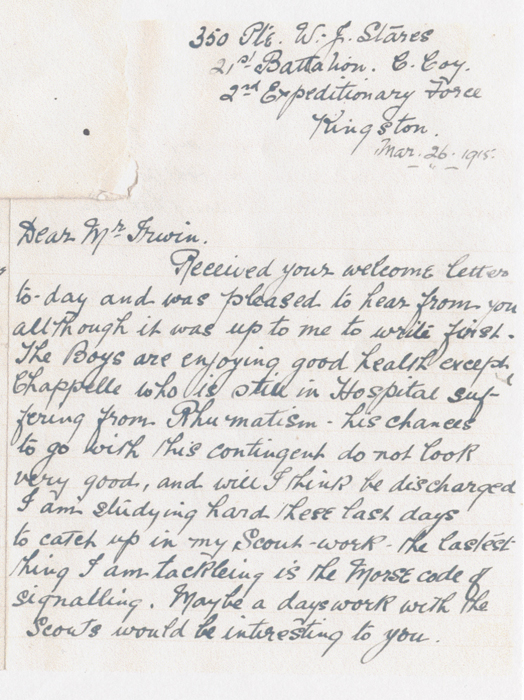 350 Pte. W. J. Stares
21st Battalion. C. Coy.
2nd Expeditionary Force
Kingston.
Mar. 26. 1915.
Dear Mr Irwin.
Received your welcome letter
to-day and was pleased to hear from you
although it was up to me to write first.
The Boys are enjoying good health except
Chappelle who is still in Hospital suf-
fering from Rhumatism - his chances
to go with this contingent do not look
very good, and will I think be discharged
I am studying hard these last days
to catch up in my Scout-work - the lastest
thing I am tackleing is the Morse code of
signalling. Maybe a days work with the
Scouts would be interesting to you.